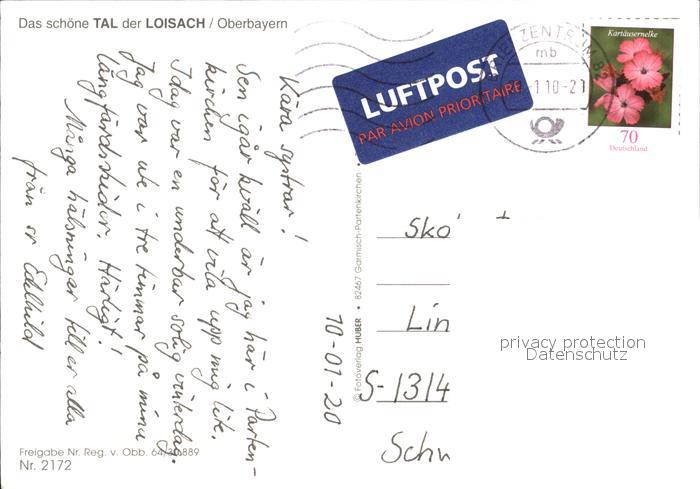 Das schöne TAL der LOISACH / Oberbayern
Kära systrar!
Sen igår kväll är jag här i Parten-
kirchen för att vila upp mig lite.
Idag var en underbar solig vinterdag.
Jag var ute i tre timmar på mina
långfärdsskidor. Härligt!
Många hälsningar till er alla
från er Edelhild
10-01-20
LUFTPOST
PAR AVION PRIORITAIRE
ZENTRUM
mb
1.10-21
Kartäusernelke
70
Deutschland
Sko
Lin
S-1314
Schw
© Fotoverlag HUBER • 82467 Garmisch-Partenkirchen
privacy protection
Datenschutz
Freigabe Nr. Reg. v. Obb. 64/30889
Nr. 2172